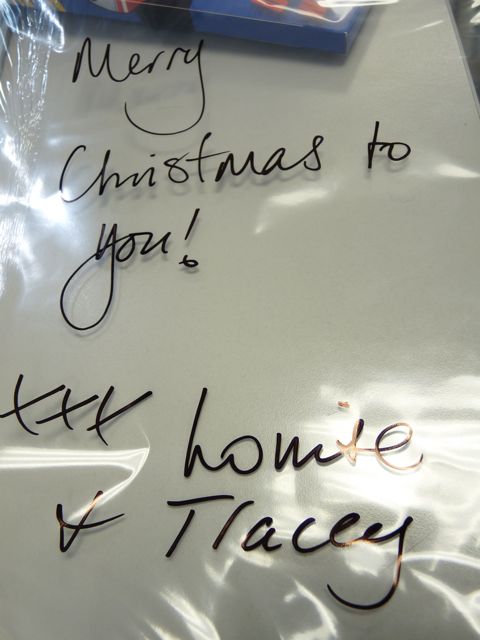 Merry
Christmas to
you!
xxx Louise
& Tracey